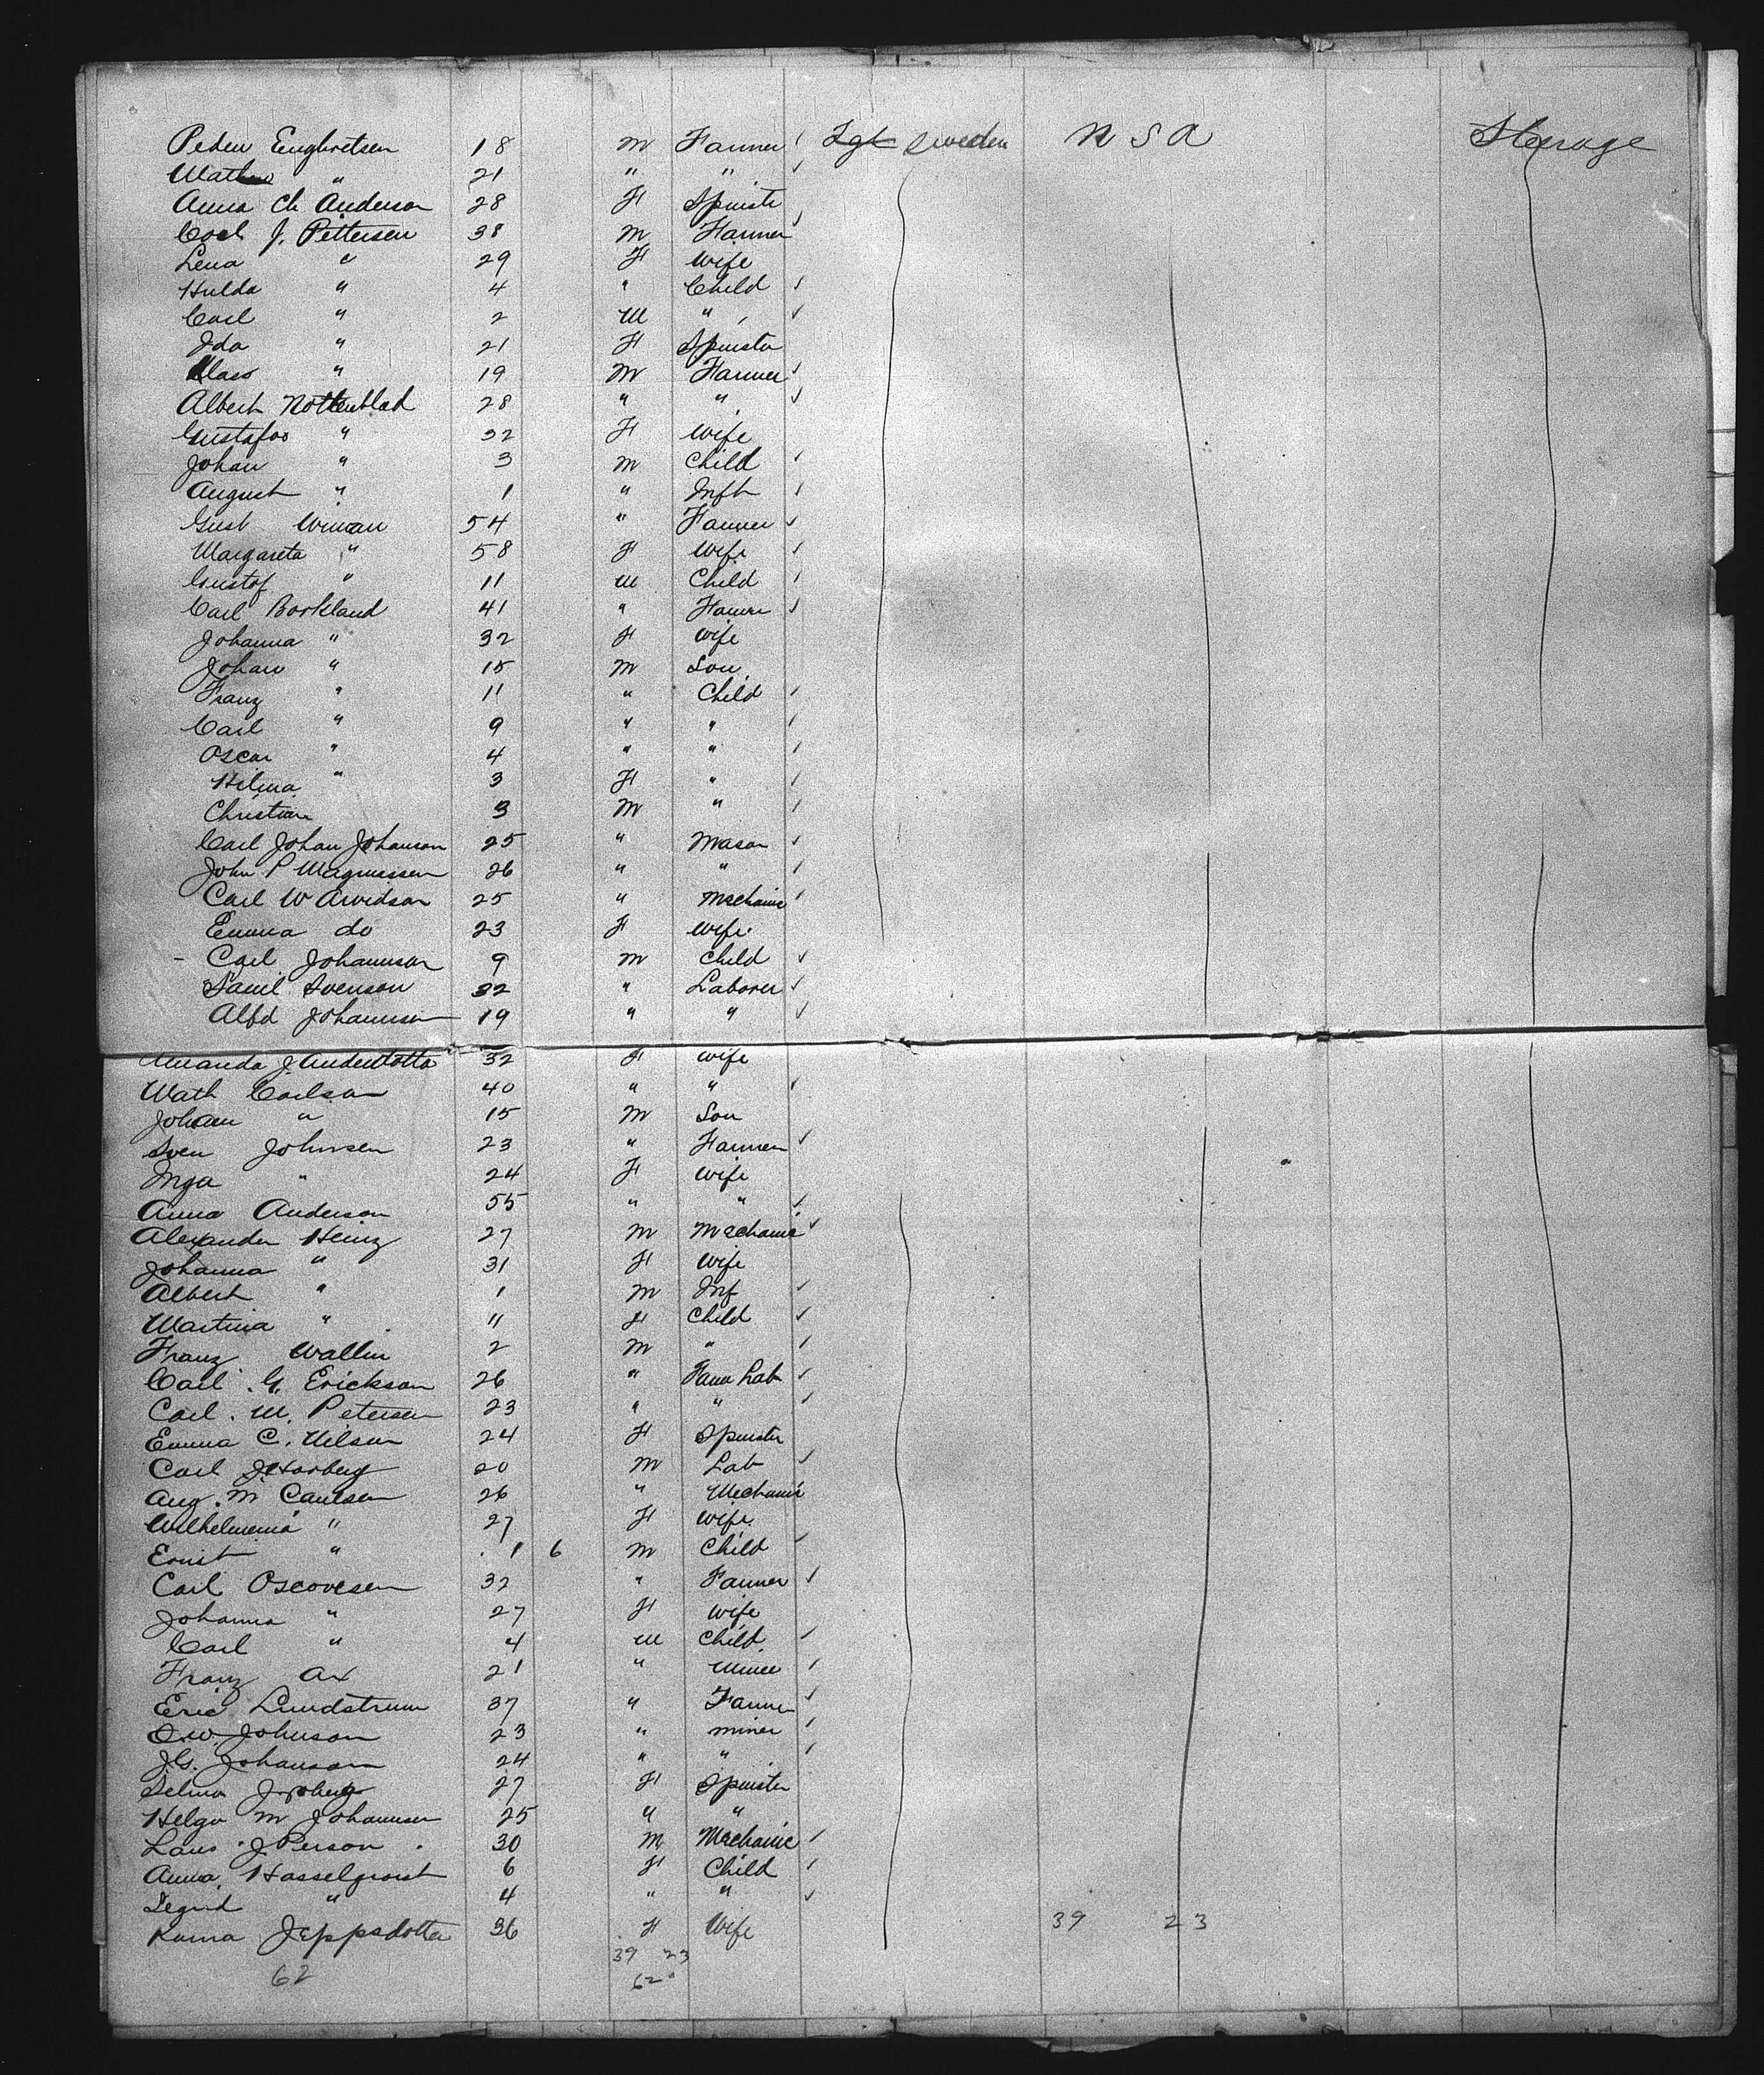 Peder Engbretsen 18 M Farmer Sweden U S A Steerage
" 21 " "
Anna Ch Anderson 28 F Spinstr
Carl J. Pettersen 38 M Farmer
Lena " 29 F Wife
Hulda " 4 " Child
Carl " 2 M "
Ida " 21 F Spinster
Claes " 19 M Farmer
Albert Nottenblad 28 " "
Gustafva " 32 F Wife
Johan " 3 M Child
August " 1 " Inft
Gust Wiman 54 " Farmer
Margareta " 58 F Wife
Gustof " 11 M Child
Carl Borkland 41 " Farmer
Johanna " 32 F Wife
Johan " 15 M Son
Franz " 11 " Child
Carl " 9 " "
Oscar " 4 " "
Hilma " 3 F "
Christian 3 M "
Carl Johan Johanson 25 " Mason
John P Magnussen 26 " "
Carl W Arvidson 25 " Mechanic
Emma do 23 F Wife
Carl Johannson 9 M Child
Daniel Svenson 32 " Laborer
Alfd Johannson 19 " "
Amanda J. 32 F Wife
Math Carlson 40 " "
Johan " 15 M Son
Sven Johnsen 23 " Farmer
Inga " 24 F Wife
Anna Anderson 55 " "
Alexander Heinz 27 M Mechanic
Johanna " 31 F Wife
Albert " 1 M Inf
Martina " 11 F Child
Franz Wallin 2 M "
Carl G. Erickson 26 " Farm Lab
Carl. M. Petersen 23 " "
Emma C. Nilson 24 F Spinster
Carl 20 M Lab
Aug. M Carlsen 26 " Mechanic
Wilhelmina " 27 F Wife
Ernst " 1 6 M Child
Carl Oscarsen 32 " Farmer
Johanna " 27 F Wife
Carl " 4 M Child
Franz Ax 21 " Miner
Eric Lundstrum 37 " Farmer
O.W. Johnson 23 " Miner
J.G. Johanson 24 " "
Selma 27 F Spinster
Helga M Johannsen 25 " "
Lars J. Person 30 M Mechanic
Anna Hasselqvist 6 F Child
Segrid " 4 " "
Karna Jeppsdotter 36 F Wife 39 23
62 39 23
62